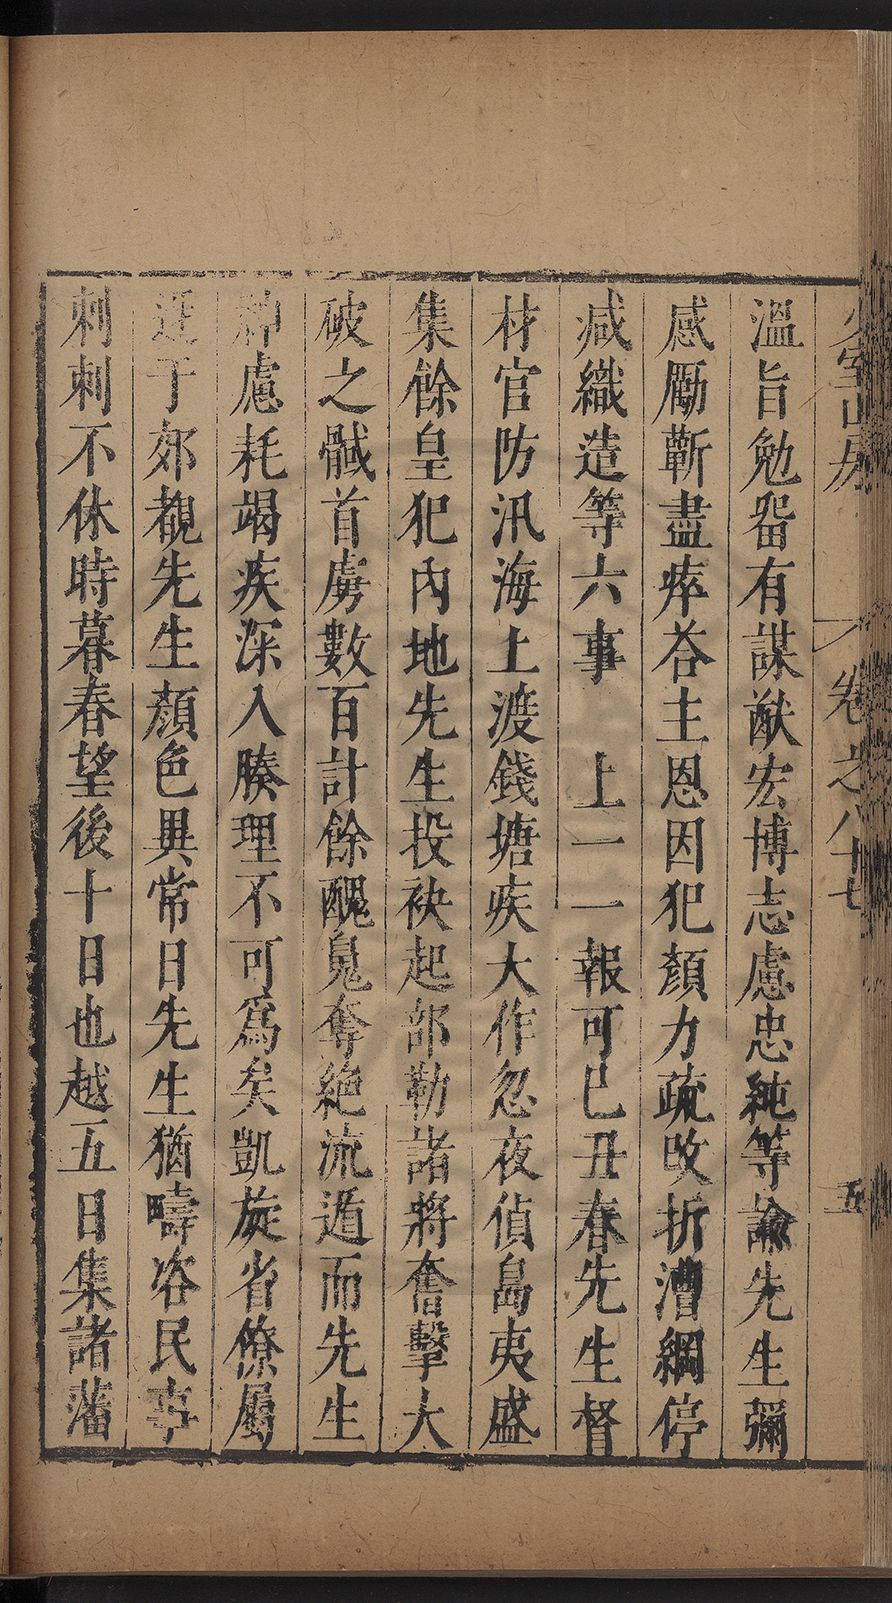 少室山房 卷之八十七 五
溫旨勉畱有謀猷宏博志慮忠純等諭先生彌
感勵蘄盡瘁荅主恩因犯顏力疏改折漕綱停
减織造等六事 上一一報可巳丑春先生督
材官防汛海上渡錢塘疾大作忽夜偵島夷盛
集餘皇犯內地先生投袂起部勒諸將奮擊大
破之馘首虜數百計餘醜鬼奪絶流遁而先生
神慮耗竭疾深入腠理不可爲矣凱旋省僚屬
迓于郊覩先生顏色異常日先生猶疇咨民事
刺刺不休時暮春望後十日也越五日集諸藩